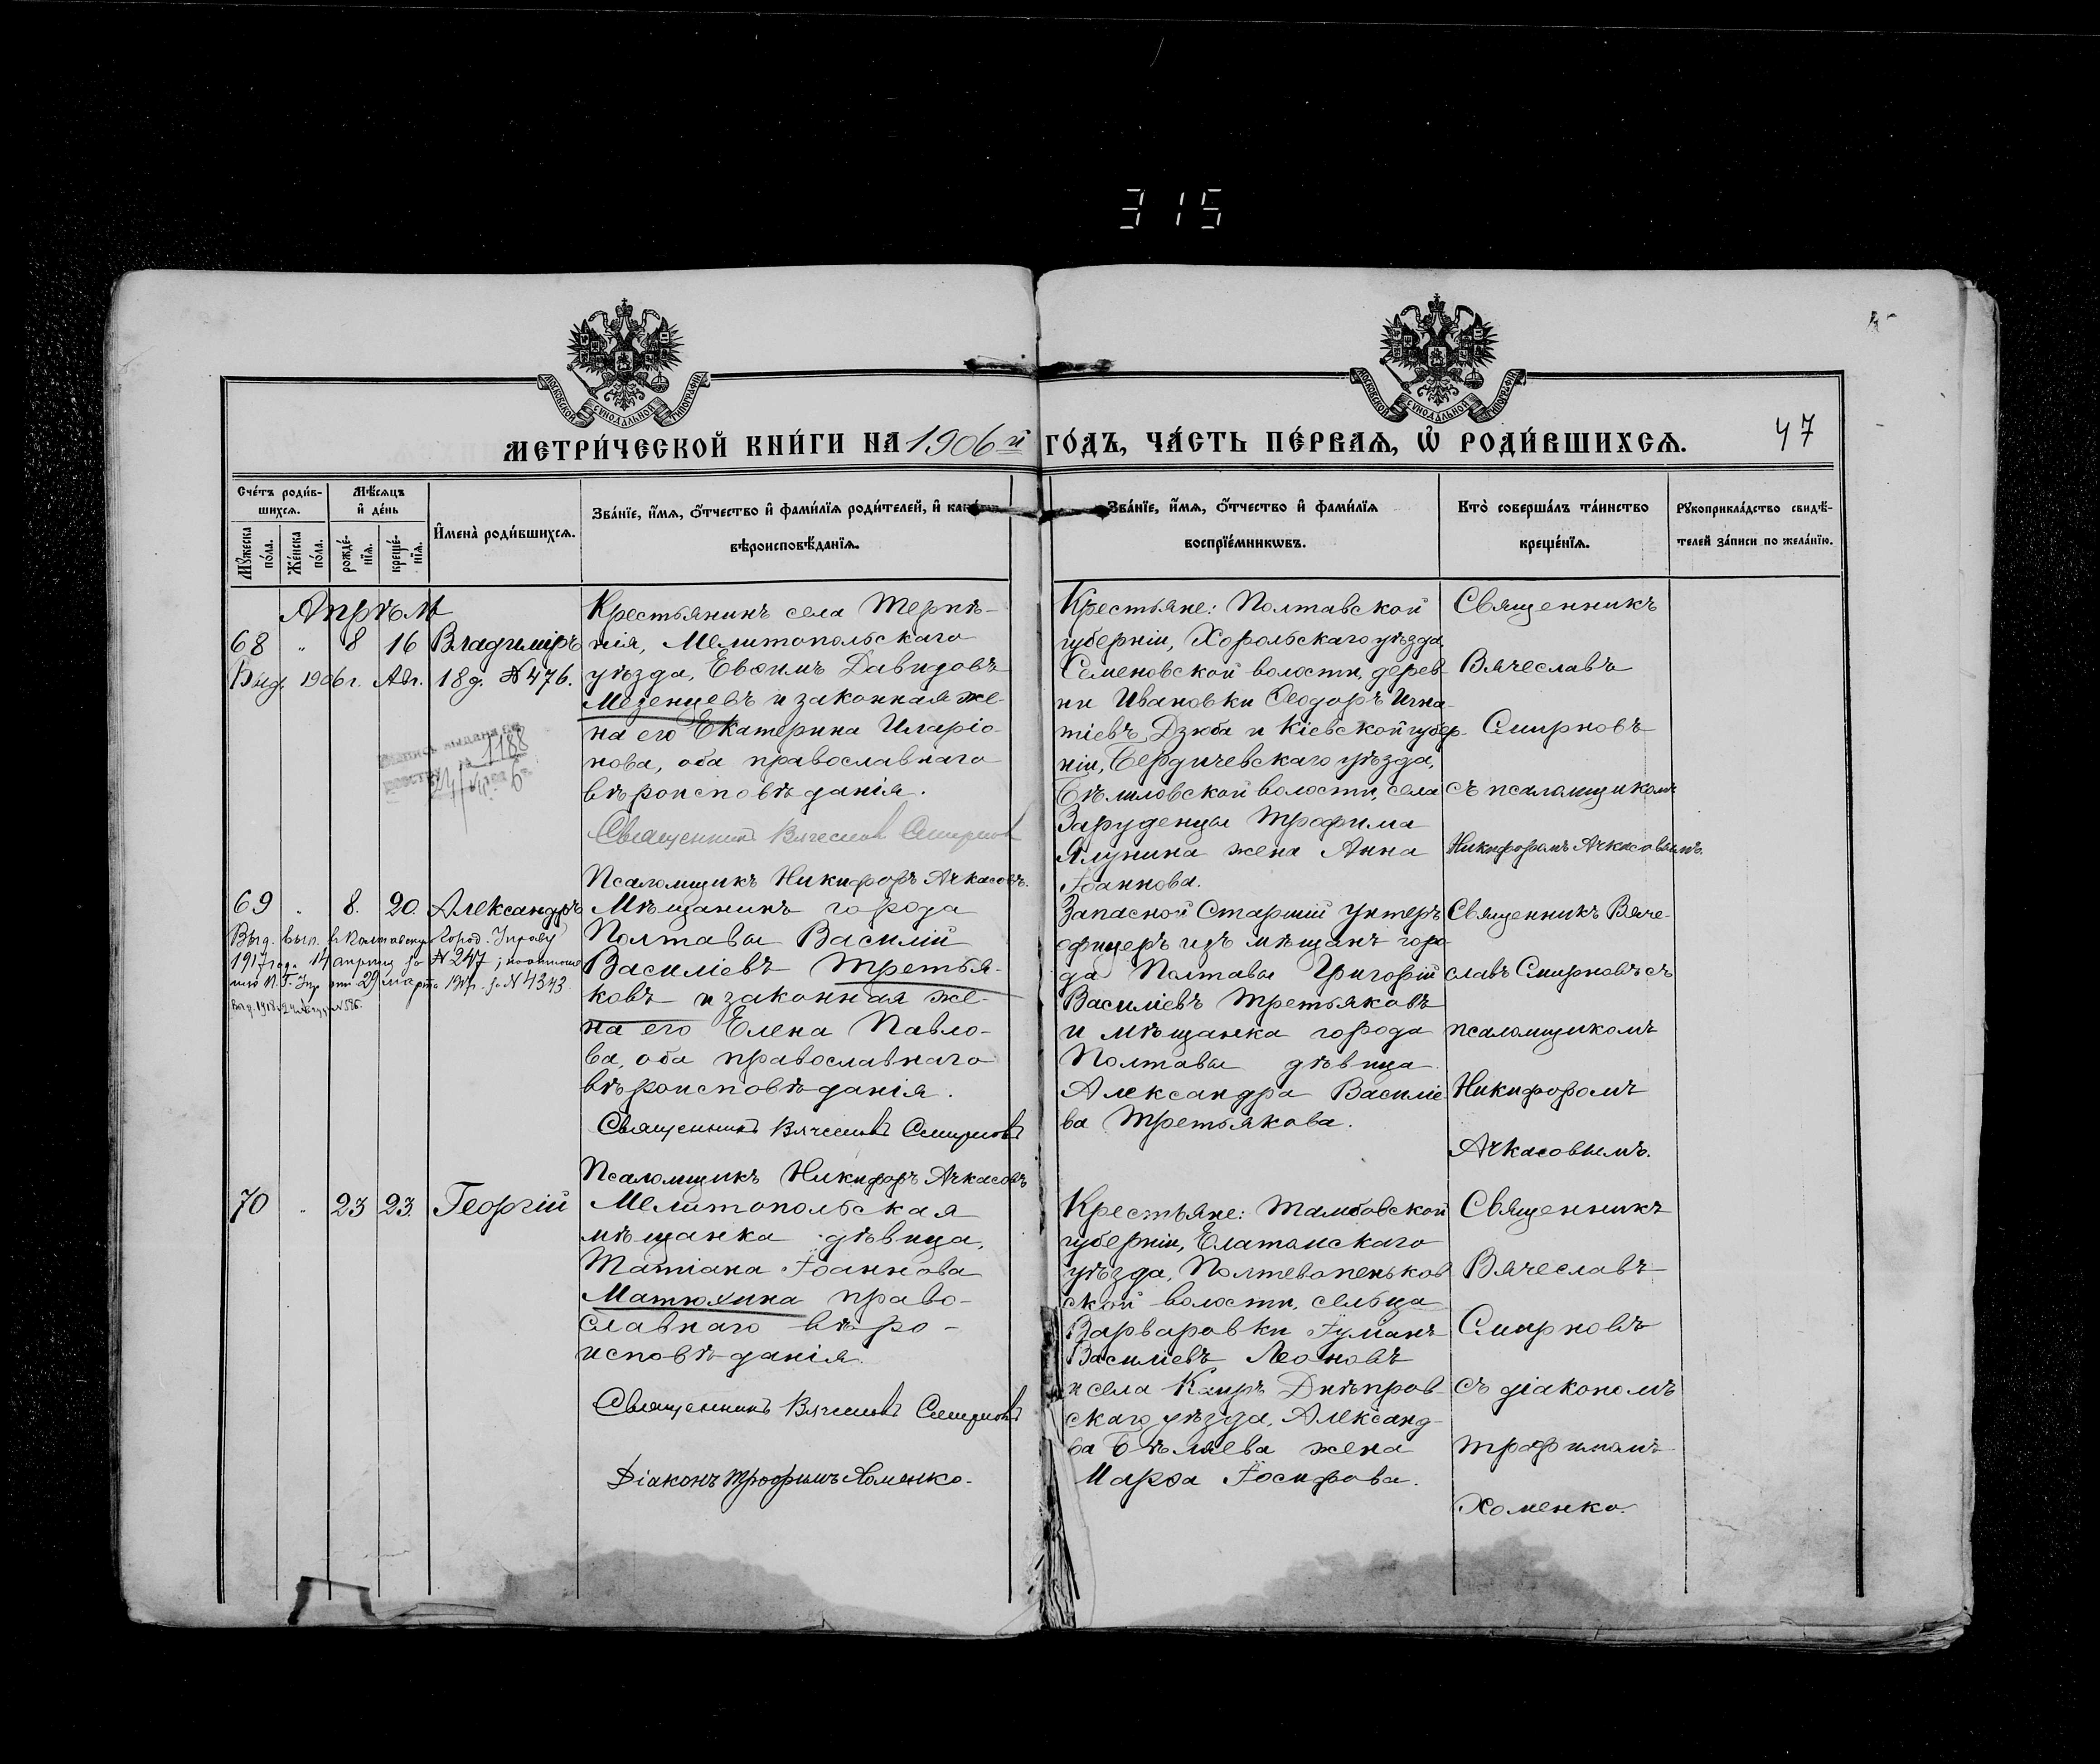 315
МОСКОВСКОЙ СУНОДАЛЬНОЙ ТИПОГРАФІИ
МОСКОВСКОЙ СУНОДАЛЬНОЙ ТИПОГРАФІИ
МЕТРИ́ЧЕСКОЙ КНИ́ГИ НА 1906 й ГО́ДЪ, ЧА́СТЬ ПЕ́РВАѦ, Ѡ҆ РОДИ́ВШИХСѦ.
47
Сче́тъ роди́в-
шихсѧ.
Мꙋ́жеска по́ла.
Же́нска по́ла.
Мѣ́сѧцъ
и҆ де́нь
рожде́-
нїѧ.
креще́-
нїѧ.
И҆мена̀ роди́вшихсѧ.
Зва́нїе, и҆́мѧ, ѻ҆́тчество и҆ фами́лїѧ роди́телей, и҆
вѣроисповѣ́данїѧ.
Зва́нїе, и҆́мѧ, ѻ҆́тчество и҆ фами́лїѧ
воспрїе́мникѡвъ.
Кто̀ соверша́лъ та́инство
креще́нїѧ.
Рꙋкоприкла́дство свидѣ́-
телей за́писи по жела́нїю.
Апрѣль
68 " 8 16 Владимiръ
Выд. 1906 г. Авг. 18 д. № 476.
1188
Крестьянинъ села Терпѣ-
нія, Мелитопольскаго
уѣзда, Евѳимъ Давидовъ
Мезенцевъ и законная же-
на его Екатерина Иларіо-
нова, оба православнаго
вѣроисповѣданія.
Священникъ Вячеславъ Смирновъ
Псаломщикъ Никифоръ Ачкасовъ.
Крестьяне: Полтавской
губерніи, Хорольскаго уѣзда,
Семеновской волости, дерев-
ни Ивановки Ѳеодоръ Игна-
тіевъ Дзюба и Кіевской губер-
ніи, Бердичевскаго уѣзда,
Бѣлиловской волости, села
Заруденцы Трофима
Ялунина жена Анна
Іоаннова.
Священникъ
Вячеславъ
Смирновъ
съ псаломщикомъ
Никифоромъ Ачкасовымъ.
69 " 8. 20. Александръ
Выд. вып. в Полтавскую Город. Управу
1917 года 14 апрѣля за № 247;
29 марта за № 4343
Мѣщанинъ города
Полтавы Василій
Василіевъ Третья-
ковъ и законная же-
на его Елена Павло-
ва, оба православнаго
вѣроисповѣданія.
Священникъ Вячеславъ Смирновъ
Псаломщикъ Никифоръ Ачкасовъ
Запасной Старшій унтеръ
офицеръ изъ мѣщанъ горо-
да Полтавы Григорій
Василіевъ Третьяковъ
и мѣщанка города
Полтавы дѣвица
Александра Василіе-
ва Третьякова.
Священникъ Вяче-
славъ Смирновъ съ
псаломщикомъ
Никифоромъ
Ачкасовымъ.
70 " 23 23. Георгій
Мелитопольская
мѣщанка дѣвица,
Татіана Іоаннова
Матюхина право-
славнаго вѣро-
исповѣданія.
Священникъ Вячеславъ Смирновъ
Діаконъ Трофимъ Хоменко.
Крестьяне: Тамбовской
губерніи, Елатомскаго
уѣзда, Полтевопеньков
ской волости, сельца
Варваровки
Василіевъ Леоновъ
и села Каиръ Днѣпров-
скаго уѣзда, Александ-
ра Бѣляева жена
Марѳа Іосифова.
Священникъ
Вячеславъ
Смирновъ
съ діакономъ
Трофимомъ
Хоменко.